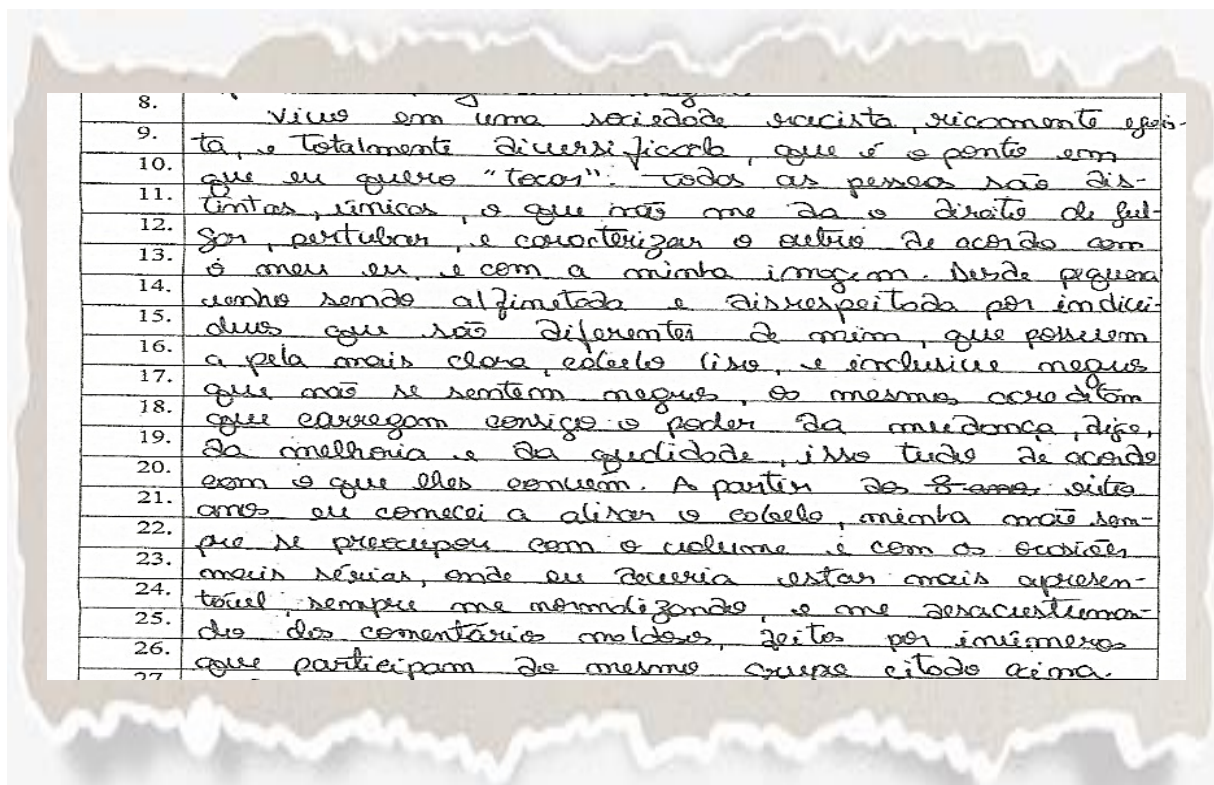 8.
Vivo em uma sociedade racista, ricamente egois-
9.
ta, e totalmente diversificada, que é o ponto em
10.
que eu quero "tocar". Todas as pessoas são dis-
11.
tintas, únicas, o que não me da o direito de jul-
12.
gar, pertubar, e caracterizar o outro de acordo com
13.
o meu eu, e com a minha imagem. Desde pequena
14.
venho sendo alfinetada e disrespeitada por indiví-
15.
duos que são diferentes de mim, que possuem
16.
a pela mais clara, cabelo liso, e inclusive negros
17.
que não se sentem negros, os mesmos acreditam
18.
que carregam consigo o poder da mudança, digo,
19.
da melhoria e da qualidade, isso tudo de acordo
20.
com o que lhes convem. A partir dos 8 anos oito
21.
anos eu comecei a alisar o cabelo, minha mãe sem-
22.
pre se preocupou com o volume e com as ocasiões
23.
mais sérias, onde eu deveria estar mais apresen-
24.
tável, sempre me normalizando, e me desacostuman-
25.
do dos comentários maldosos, feitos por inúmeros
26.
que participam do mesmo grupo citado acima.
27